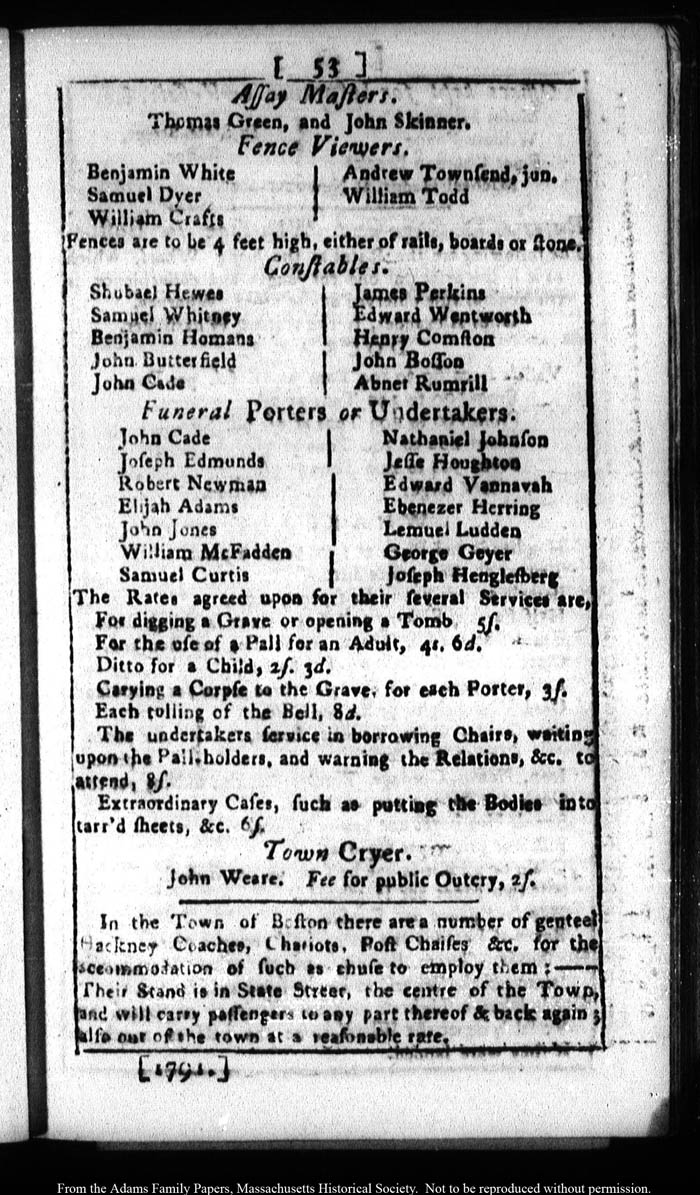 [ 53 ]
Aſſay Maſters.
Thomas Green, and John Skinner.
Fence Viewers.
Benjamin White
Samuel Dyer
William Crafts
Andrew Townſend, jun.
William Todd
Fences are to be 4 feet high, either of rails, boards or ſtone.
Conſtables.
Shubael Hewes
Samuel Whitney
Benjamin Homans
John Butterfield
John Cade
James Perkins
Edward Wentworth
Henry Comſton
John Boſſon
Abner Rumrill
Funeral Porters or Undertakers.
John Cade
Joſeph Edmunds
Robert Newman
Elijah Adams
John Jones
William McFadden
Samuel Curtis
Nathaniel Johnſon
Jeſſe Houghton
Edward Vannavah
Ebenezer Herring
Lemuel Ludden
George Geyer
Joſeph Henglefberg
The Rates agreed upon for their ſeveral Services are,
For digging a Grave or opening a Tomb 5ſ.
For the uſe of a Pall for an Adult, 4s. 6d.
Ditto for a Child, 2ſ. 3d.
Carying a Corpſe to the Grave, for each Porter, 3ſ.
Each tolling of the Bell, 8d.
The undertakers ſervice in borrowing Chairs, waiting
upon the Pall-holders, and warning the Relations, &c. to
attend, 8ſ.
Extraordinary Caſes, ſuch as putting the Bodies into
tarr'd ſheets, &c. 6ſ.
Town Cryer.
John Weare. Fee for public Outcry, 2ſ.
In the Town of Boſton there are a number of genteel
Hackney Coaches, Chariots, Poſt Chaiſes &c. for the
accommodation of ſuch as chuſe to employ them ;——
Their Stand is in State Street, the centre of the Town,
and will carry paſſengers to any part thereof & back again ;
alſo out of the town at a reaſonable rate.
[1791.]
From the Adams Family Papers, Massachusetts Historical Society. Not to be reproduced without permission.